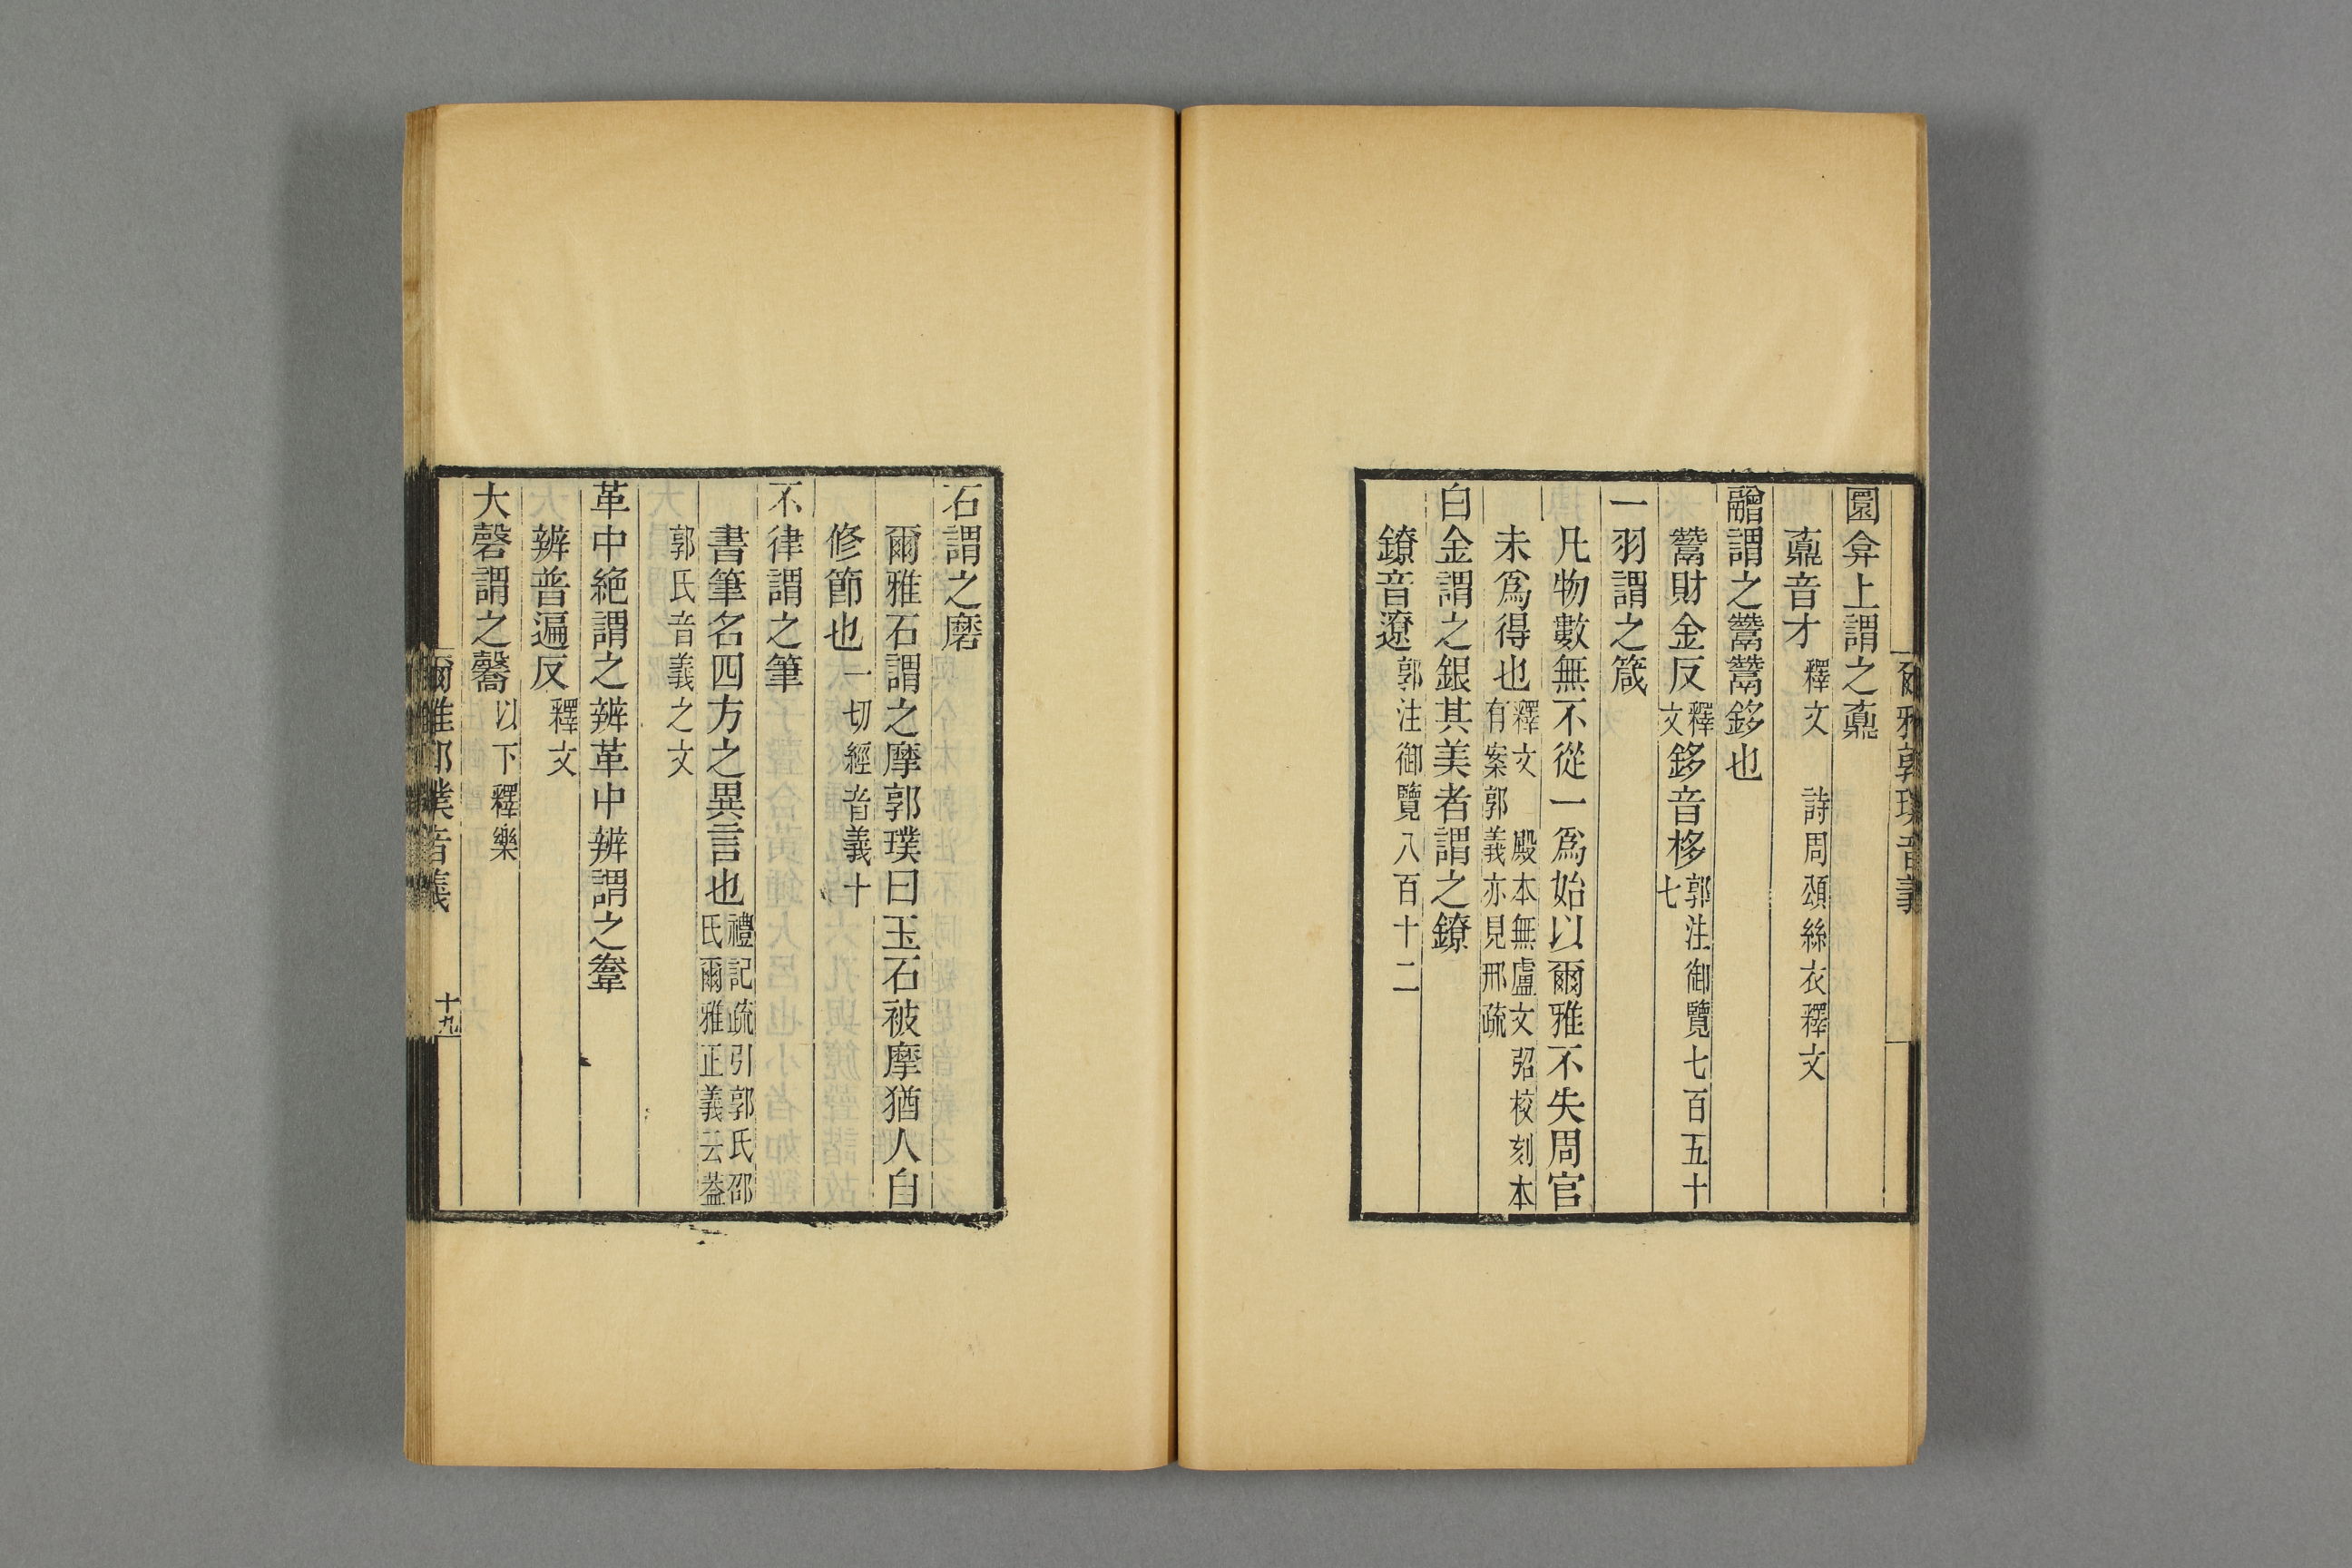 爾雅郭璞音義
圜弇上謂之鼒
鼒音才 釋文 詩周頌絲衣釋文
䰝謂之鬵鬵鉹也
鬵財金反 釋文 鉹音移 郭注御覽七百五十七
一羽謂之箴
凡物數無不從一為始以爾雅不失周官
未為得也 釋文 殿本無盧文弨校刻本有案郭義亦見邢疏
白金謂之銀其美者謂之鐐
鐐音遼 郭注御覽八百十二
石謂之磨
爾雅石謂之摩郭璞曰玉石被摩猶人自
修節也 一切經音義十
不律謂之筆
書筆名四方之異言也 禮記疏引郭氏邵氏爾雅正義云葢
郭氏音義之文
革中絶謂之辨革中辨謂之韏
辨普遍反 釋文
大磬謂之毊 以下釋樂
爾雅郭璞音義 十九